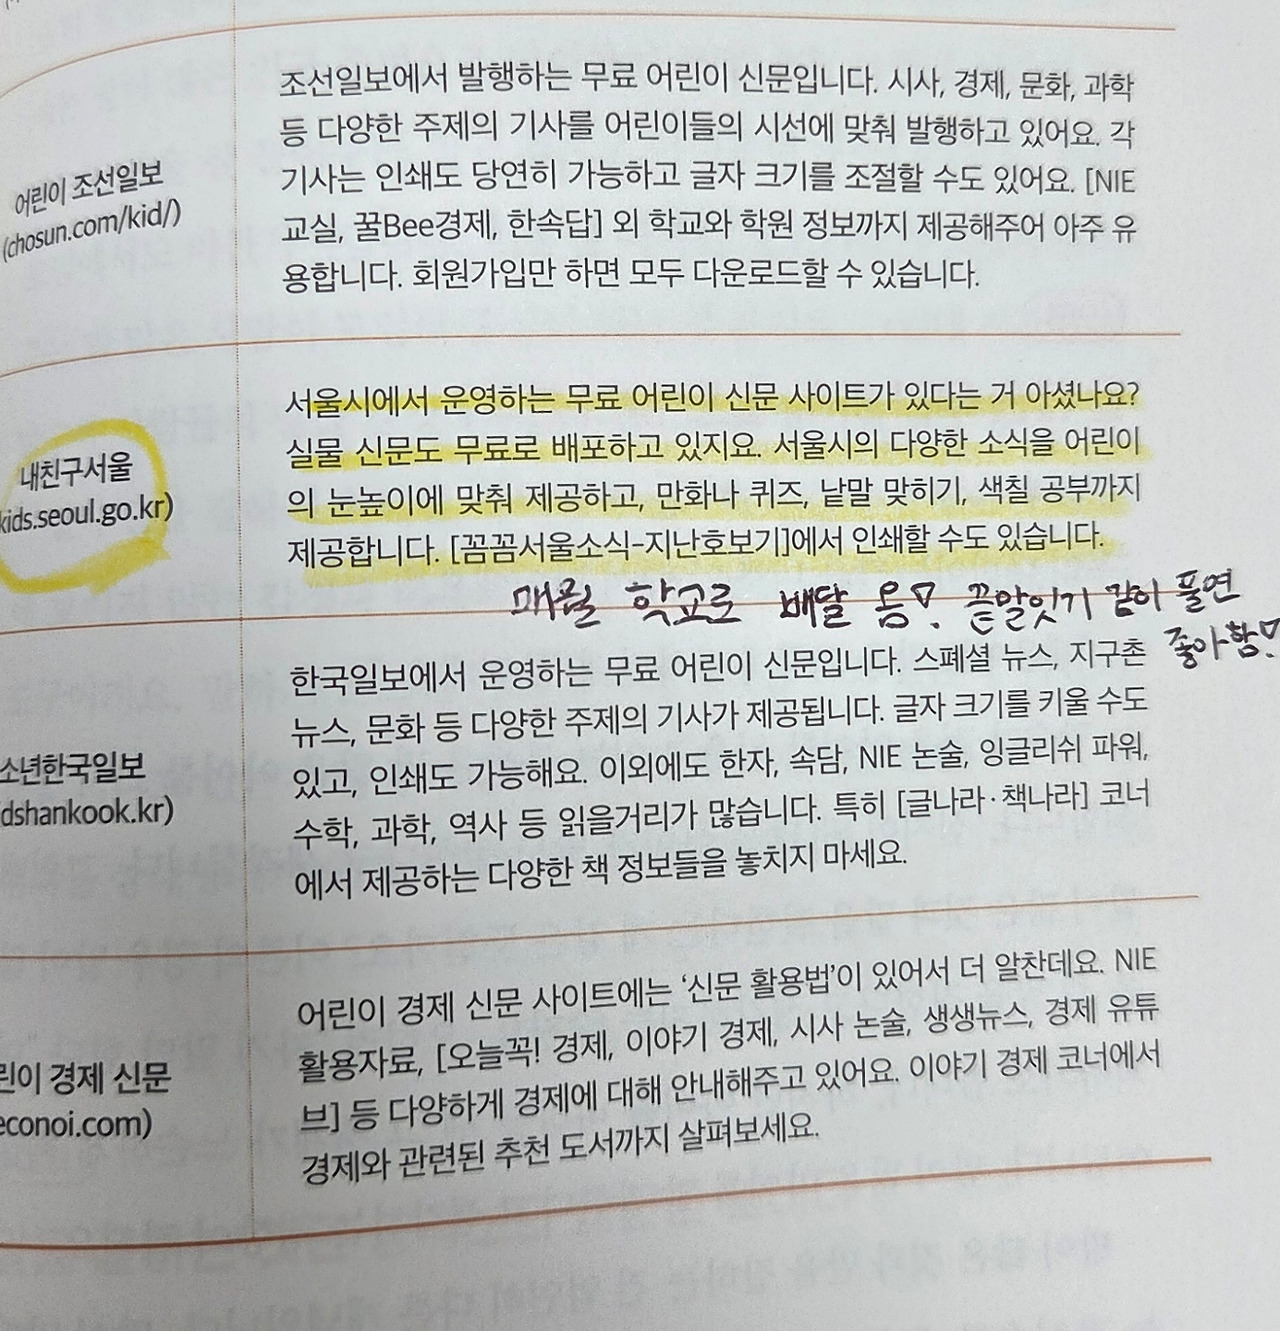 어린이 조선일보
(chosun.com/kid/)
조선일보에서 발행하는 무료 어린이 신문입니다. 시사, 경제, 문화, 과학
등 다양한 주제의 기사를 어린이들의 시선에 맞춰 발행하고 있어요. 각
기사는 인쇄도 당연히 가능하고 글자 크기를 조절할 수도 있어요. [NIE
교실, 꿀Bee경제, 한속답] 외 학교와 학원 정보까지 제공해주어 아주 유
용합니다. 회원가입만 하면 모두 다운로드할 수 있습니다.
내친구서울
kids.seoul.go.kr)
서울시에서 운영하는 무료 어린이 신문 사이트가 있다는 거 아셨나요?
실물 신문도 무료로 배포하고 있지요. 서울시의 다양한 소식을 어린이
의 눈높이에 맞춰 제공하고, 만화나 퀴즈, 낱말 맞히기, 색칠 공부까지
제공합니다. [꼼꼼서울소식-지난호보기]에서 인쇄할 수도 있습니다.
학교로 배달 옴♡. 끝말잇기 같이 풀면
좋아함♡.
소년한국일보
dshankook.kr)
한국일보에서 운영하는 무료 어린이 신문입니다. 스페셜 뉴스, 지구촌
뉴스, 문화 등 다양한 주제의 기사가 제공됩니다. 글자 크기를 키울 수도
있고, 인쇄도 가능해요. 이외에도 한자, 속담, NIE 논술, 잉글리쉬 파워,
수학, 과학, 역사 등 읽을거리가 많습니다. 특히 [글나라·책나라] 코너
에서 제공하는 다양한 책 정보들을 놓치지 마세요.
린이 경제 신문
econoi.com)
어린이 경제 신문 사이트에는 ‘신문 활용법’이 있어서 더 알찬데요. NIE
활용자료, [오늘꼭! 경제, 이야기 경제, 시사 논술, 생생뉴스, 경제 유튜
브] 등 다양하게 경제에 대해 안내해주고 있어요. 이야기 경제 코너에서
경제와 관련된 추천 도서까지 살펴보세요.